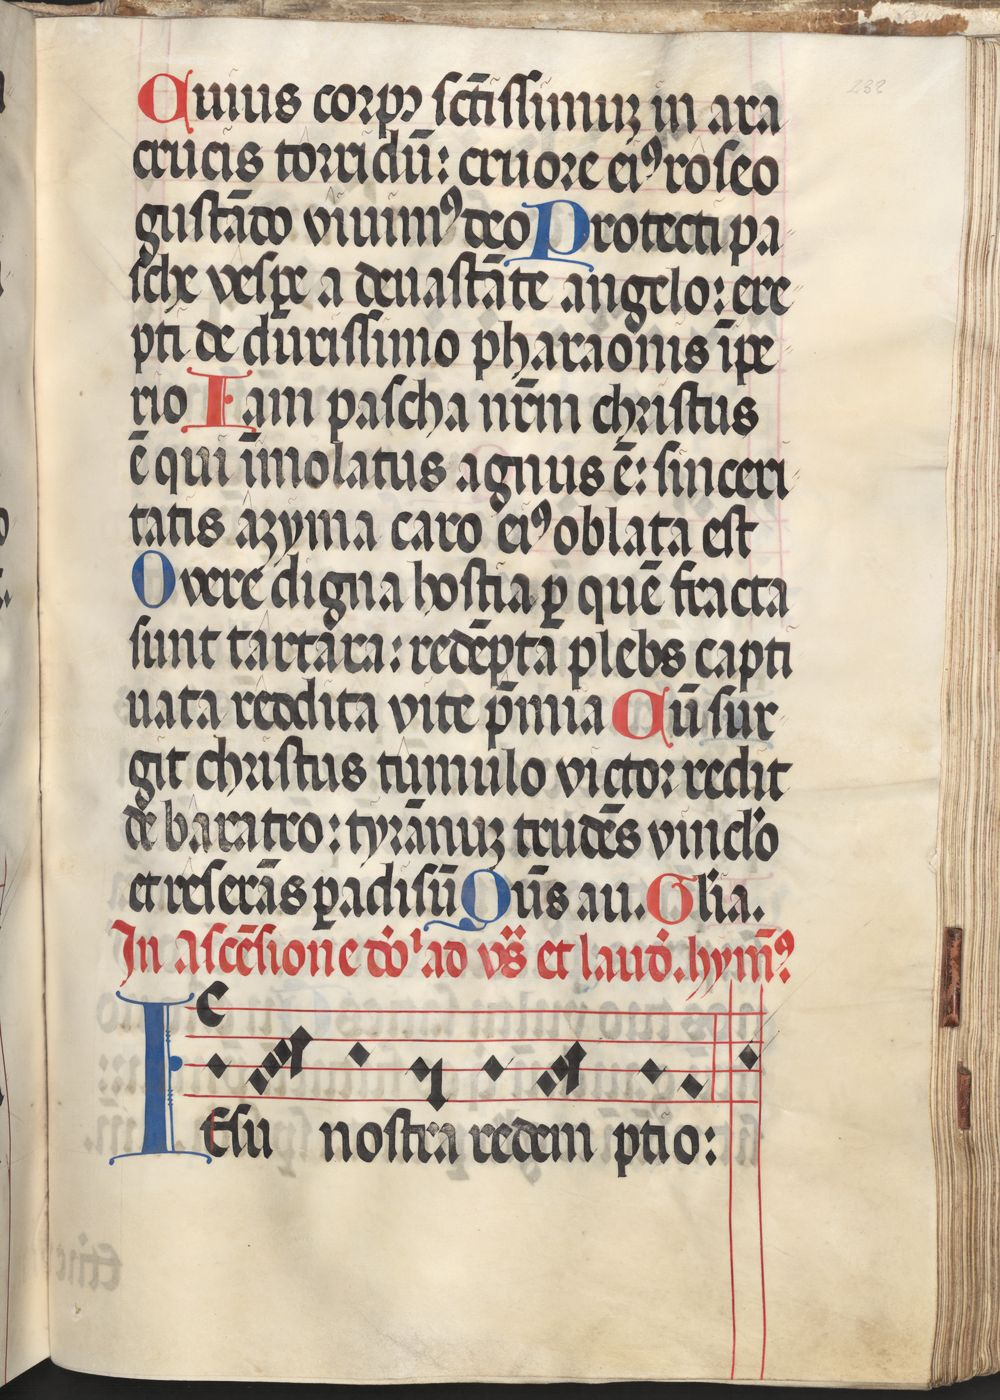 Cuius corpꝰ sc̄tissimuꝫ in ara
crucis torridū: cruore eiꝰ roseo
gustādo viuimꝰ deo Protecti pa
sche vespe a deuastāte angelo: ere
pti de durissimo pharaonis īpe
rio Iam pascha nr̄m christus
ē qui īmolatus agnus ē: sinceri
tatis azyma caro eiꝰ oblata est
O vere digna hostia ꝑ quē fracta
sunt tartara: redēpta plebs capti
uata reddita vite p̄mia Cū sur
git christus tumulo victor redit
de baratro: tyrānuꝫ trudēs vinclo
et reserās ꝑadisū Qūs au. Gl'ia.
In Ascēsione do ad vs̄ et laud. hym̄ꝰ
Iesu nostra redem ptio: